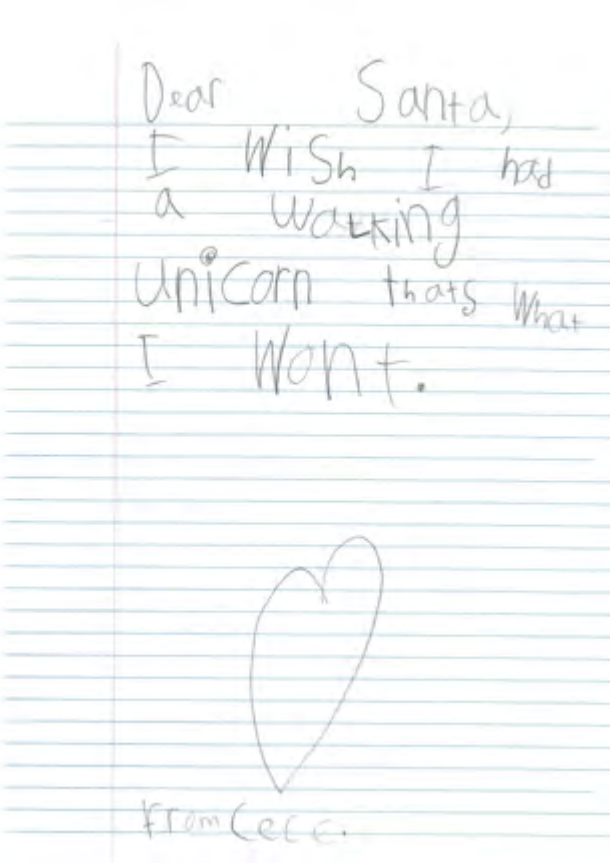 Dear Santa,
I Wish I had
a walking
unicorn thats What
I Wont.
From Cece.